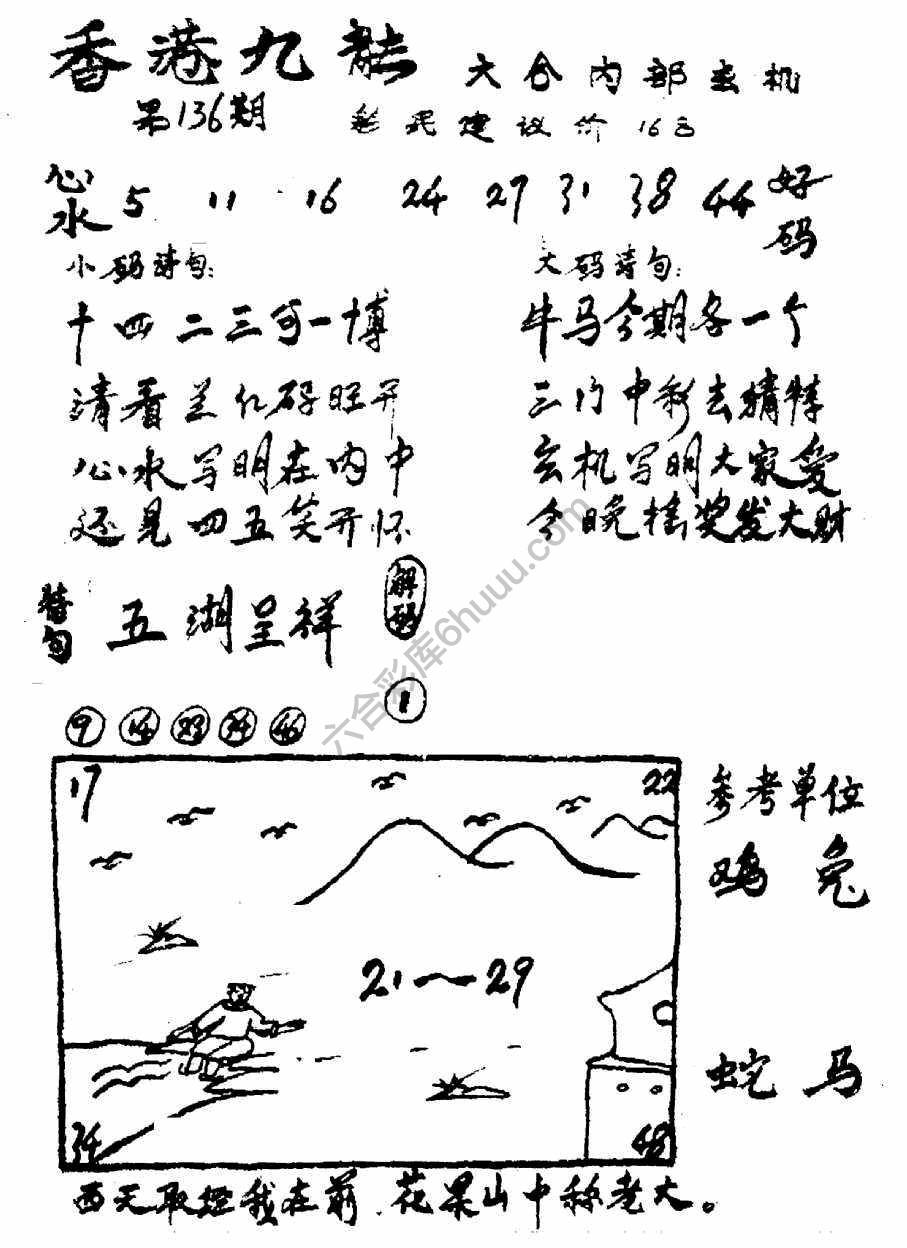 香港九龙 六合内部玄机
第136期 彩民建议价16元
心水 5 11 16 24 27 31 38 44 好码
小码诗句: 大码诗句:
十四二三可一博 牛马今期各一个
请看兰化码旺开 三门中彩去精特
心水写明在内中 玄机写明大家爱
还见四五笑开怀 今晚摇奖发大财
特句 五湖呈祥 解码
1
9 14 23 34 46
17 22 参考单位
鸡 兔
21~29
蛇 马
34 48
西天取经我在前.花果山中称老大。
六合彩库6huuu.com